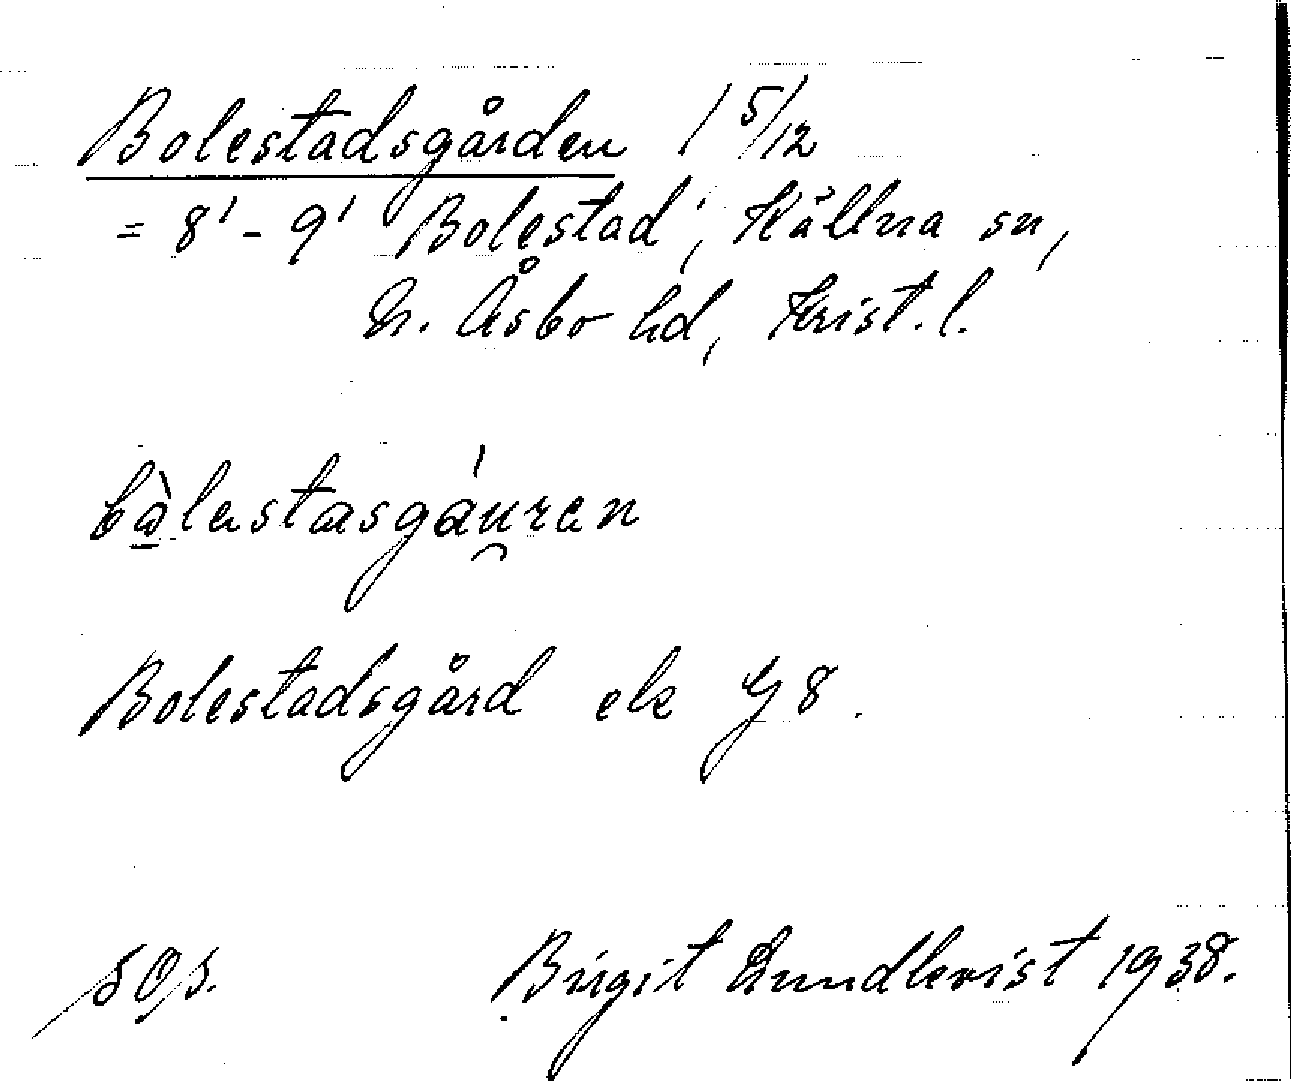 Bolestadsgården / 5/12
= 8' - 9' Bolestad, Källna sn,
N. Åsbo hd, Krist. l.
bòlastasgáu̯ren
Bolestadsgård ek G 8.
SOS.
Birgit Lundkvist 1938.